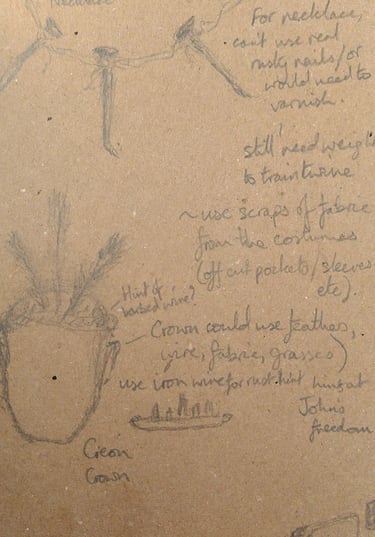 Necklace
For necklace,
can't use real
rusty nails/or
would need to
varnish.
still need weight
to train twine
~ use scraps of fabric
from the costumes
(off cut pockets/sleeves
etc).
Hint of
barbed wire?
Crown could use feathers,
wire, fabric, grasses)
use iron wire for rust hint
hint at
John's
freedom
Creon
Crown